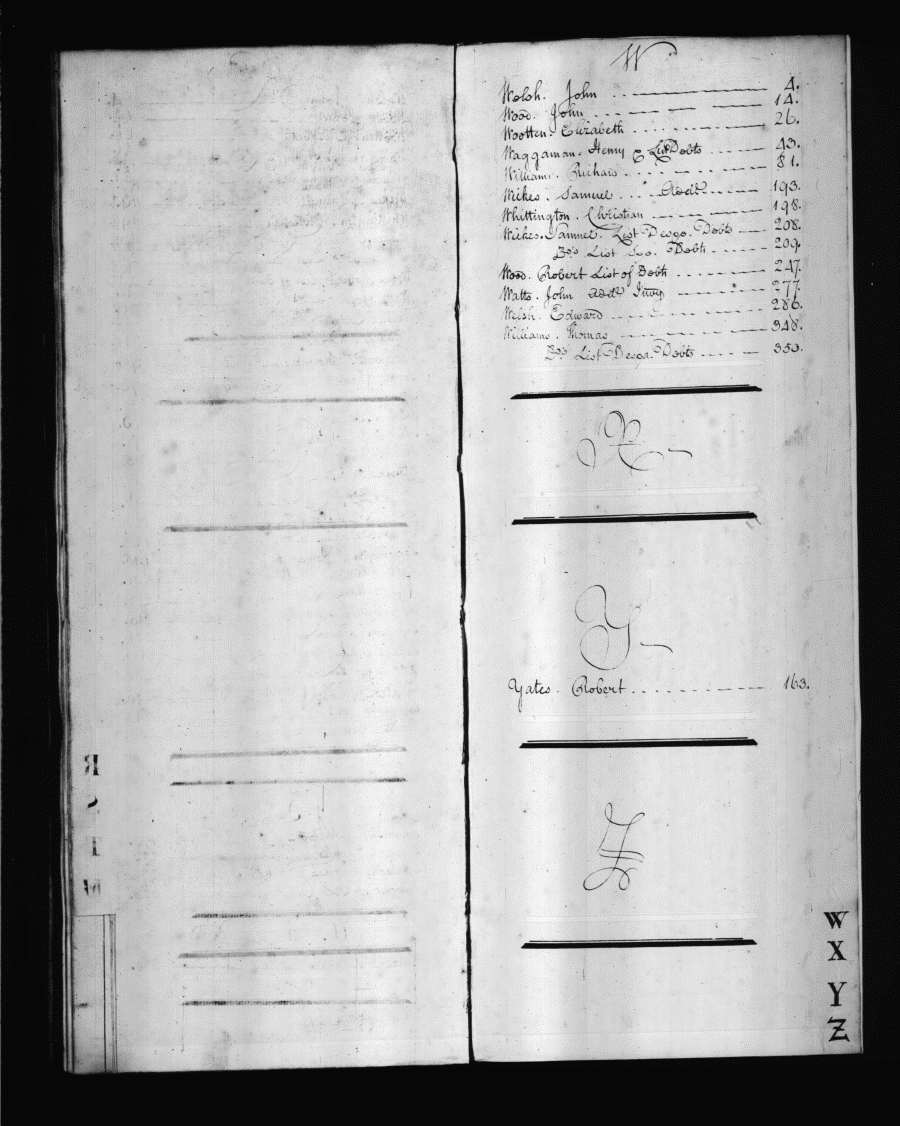 W
Welsh. John 4.
Wood. John 14.
Wootten. Elizabeth 26.
Waggaman. Henry & List Debts 43.
Williams. Richard 81.
Wilkes. Samuel. Addl 193.
Whittington. Christian 198.
Wilkes. Samuel. List Despo. Debts 208.
Do. List Debts 209.
Wood. Robert List of Debts 247.
Watts. John addl Invy 277.
Welsh. Edward 286.
Williams. Thomas 348.
Do. List Despa. Debts 350.
X
Y
Yates. Robert 163.
Z
W
X
Y
Z